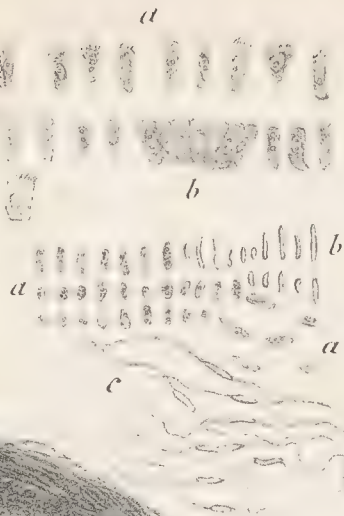 a
b
b
a
a
c